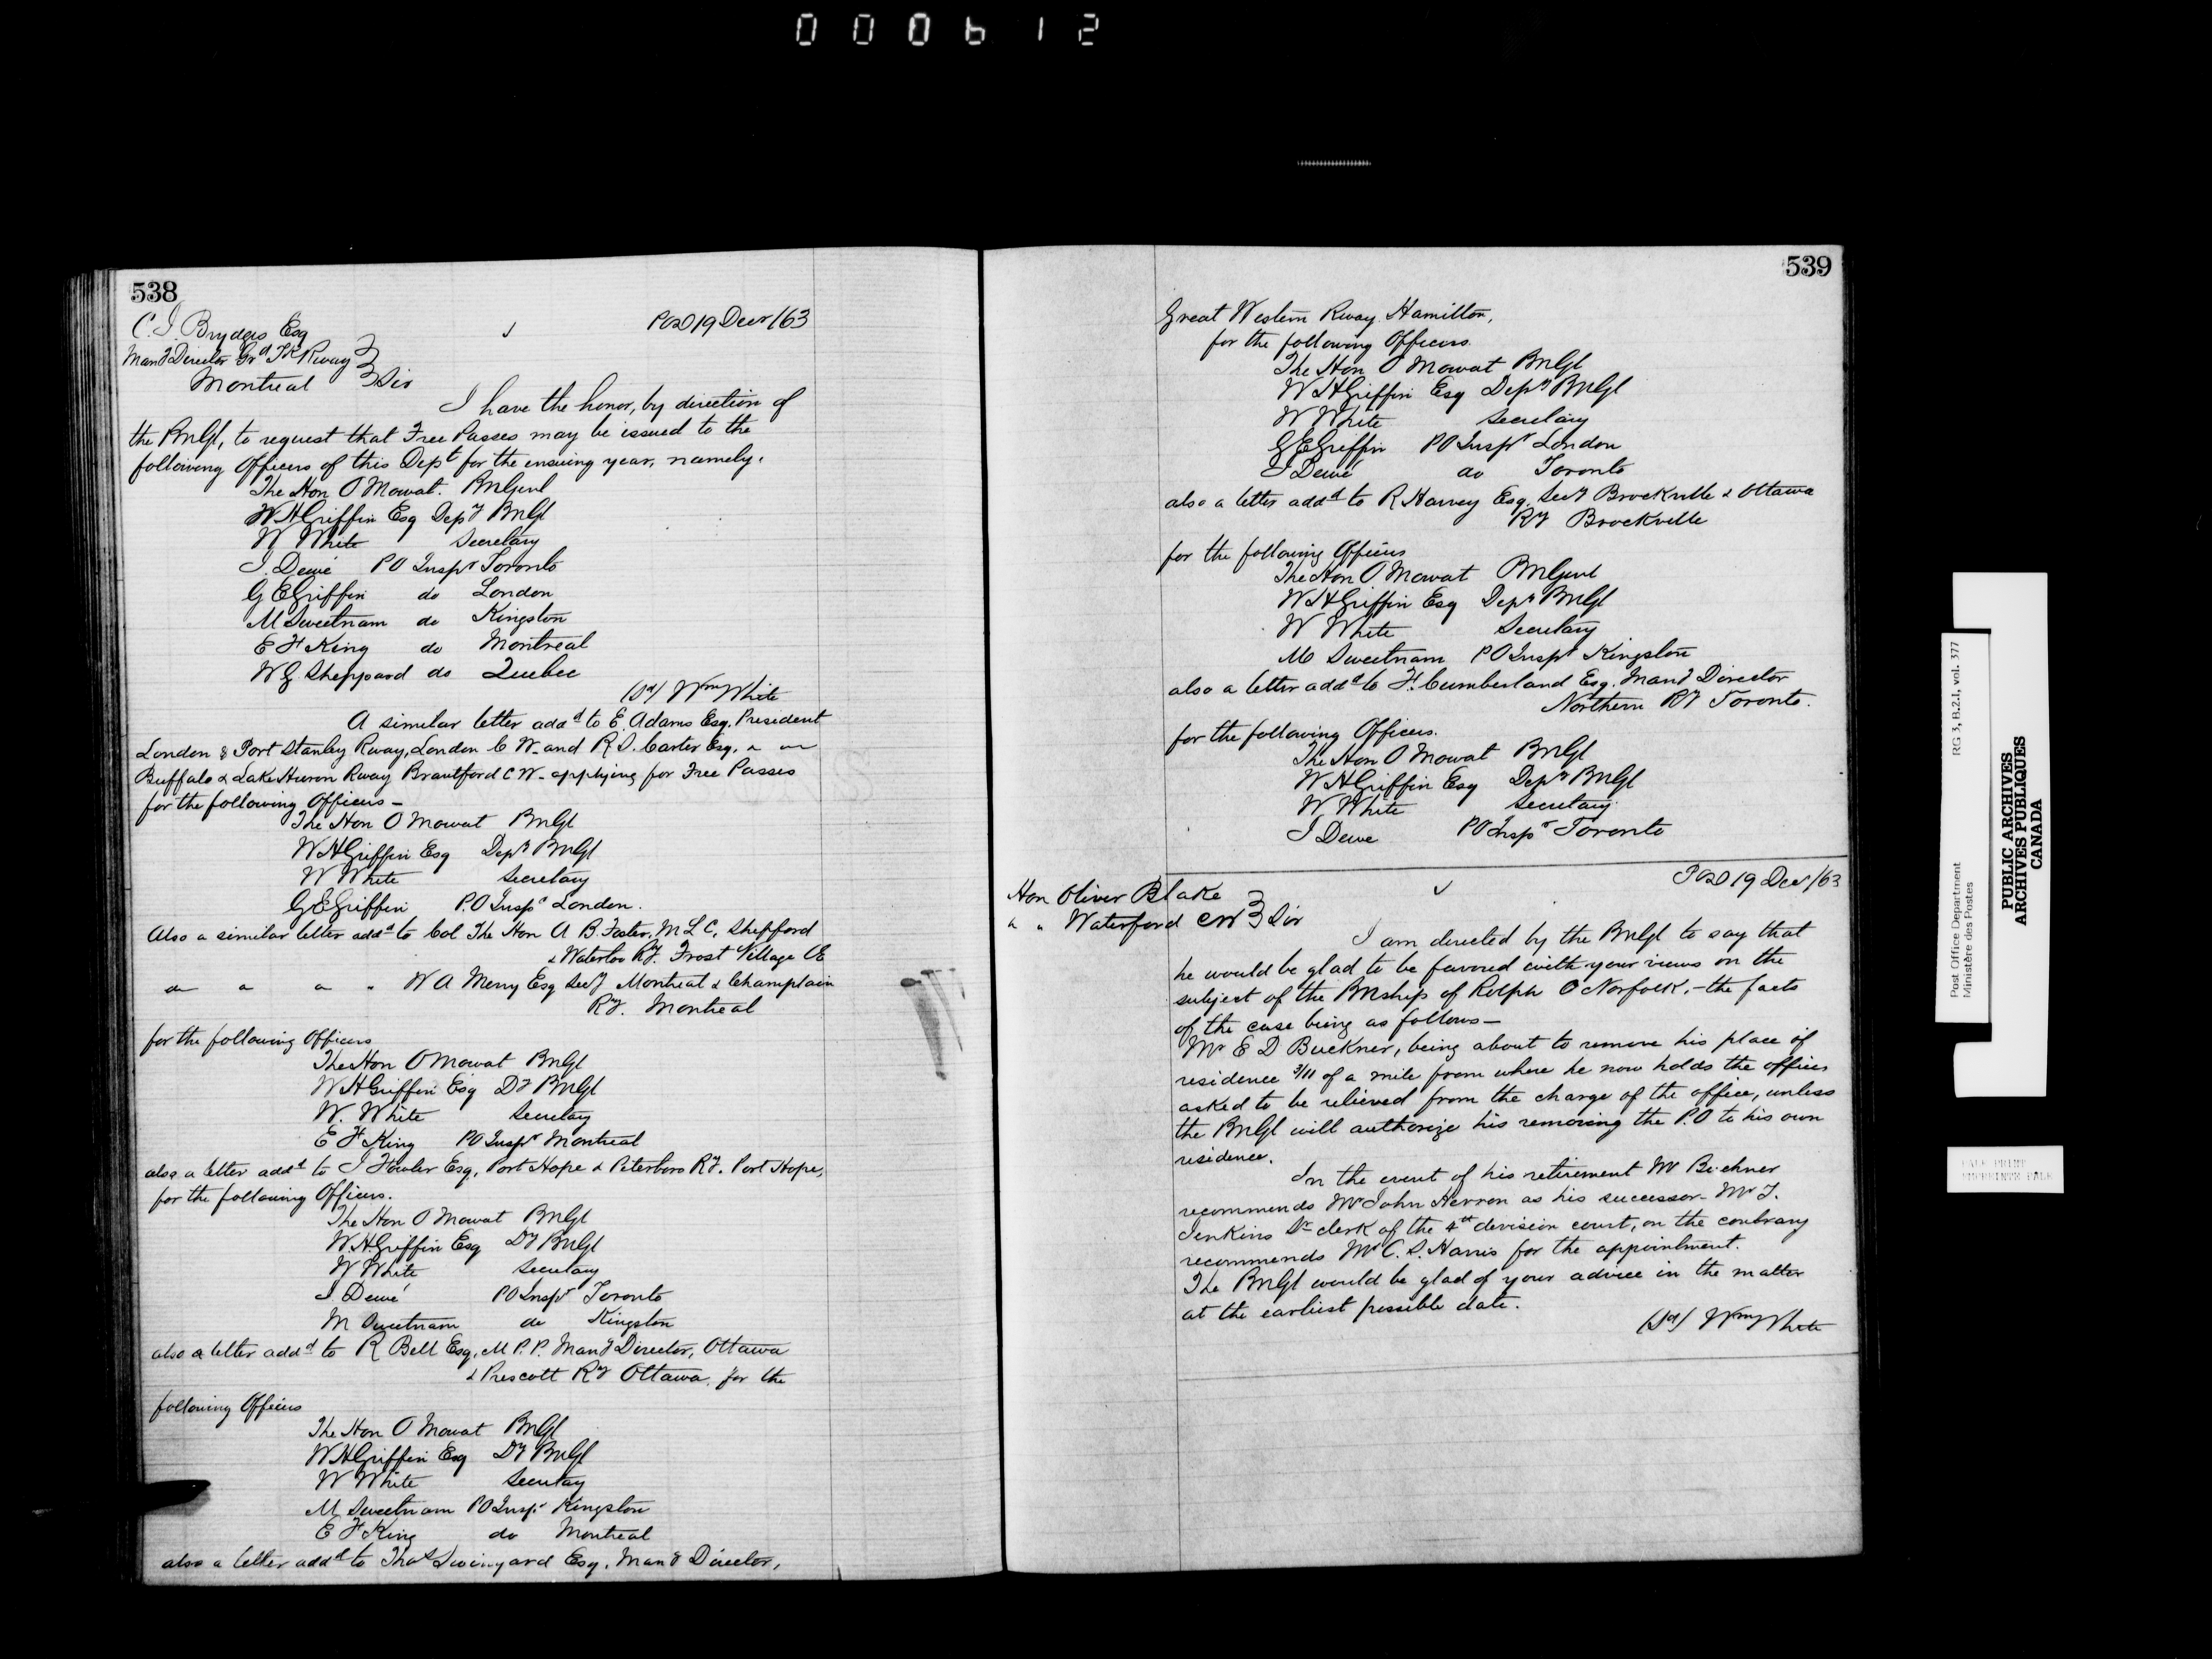 000612
538
C. J. Brydges Esq
POD 19 Decr /63
Mang Director Grd Tk Rway
Montreal Sir
I have the honor, by direction of
the PMGl, to request that Free Passes may be issued to the
following Officers of this Dept for the ensuing year, namely.
The Hon O Mowat. PMGenl
W H Griffin Esq Depy PMGl
W White Secretary
J. Dewé PO Inspr Toronto
G E Griffin do London
M Sweetnam do Kingston
E F King do Montreal
W G. Sheppard do Quebec
(Sd) Wm White
A similar letter addd to E. Adams Esq. President
London & Port Stanley Rway, London C W. and R S. Carter Esq. " "
Buffalo & Lake Huron Rway Brantford C W - applying for Free Passes
for the following Officers -
The Hon O Mowat PMGl
W H Griffin Esq Depy PMGl
W White Secretary
G E Griffin P.O Inspr London.
Also a similar letter addd to Col The Hon A B. Foster, M L C, Shefford
& Waterloo Ry. Frost Village CE
" " " " W A Merry Esq Secy Montreal & Champlain
Ry. Montreal
for the following Officers
The Hon O Mowat PMGl
W H Griffin Esq Dy PMGl
W. White Secretary
E F King PO Inspr Montreal
also a letter addd to J Fowler Esq, Port Hope & Peterboro Ry. Port Hope,
for the following Officers.
The Hon O Mowat PMGl
W. H Griffin Esq Dy PMGl
W White Secretary
J. Dewé PO Inspr Toronto
M Sweetnam do Kingston
also a letter addd to R Bell Esq. M P. P. Mang Director, Ottawa
& Prescott Ry Ottawa. for the
following Officers
The Hon O Mowat PMGl
W H Griffin Esq Dy PMGl
W White Secretary
M Sweetnam PO Inspr Kingston
E F King do Montreal
also a letter addd to Thos Swinyard Esq. Mang Director,
539
Great Western Rway. Hamilton,
for the following Officers.
The Hon O Mowat PMGl
W H Griffin Esq Depy PMGl
W White Secretary
G E Griffin PO Inspr London
J Dewé do Toronto
also a letter addd to R Harvey Esq, Secy Brockville & Ottawa
Ry Brockville
for the following Officers
The Hon O Mowat PMGenl
W H Griffin Esq Depy PMGl
W White Secretary
M Sweetnam PO Inspr Kingston
also a letter addd to F. Cumberland Esq. Mang Director
Northern Ry Toronto.
for the following Officers.
The Hon O Mowat PMGl
W H Griffin Esq Depy PMGl
W White Secretary
J Dewe PO Inspr Toronto
POD 19 Decr /63
Hon Oliver Blake
" " Waterford CW Sir
I am directed by the PMGl to say that
he would be glad to be favored with your views on the
subject of the PMship of Rolph Co Norfolk, - the facts
of the case being as follows -
Mr E D Buckner, being about to remove his place of
residence 3/11 of a mile from where he now holds the office,
asked to be relieved from the charge of the office, unless
the PMGl will authorize his removing the P.O to his own
residence.
In the event of his retirement Mr Buckner
recommends Mr John Herron as his successor - Mr J.
Jenkins Dr clerk of the 4th devision court, on the contrary
recommends Mr C. S. Harris for the appointment.
The PMGl would be glad of your advice in the matter
at the earliest possible date.
(Sd) Wm White
Post Office Department
Ministère des Postes
RG 3, B.2.1, vol. 377
PUBLIC ARCHIVES
ARCHIVES PUBLIQUES
CANADA
PALE PRINT
IMPRIMÉE PALE